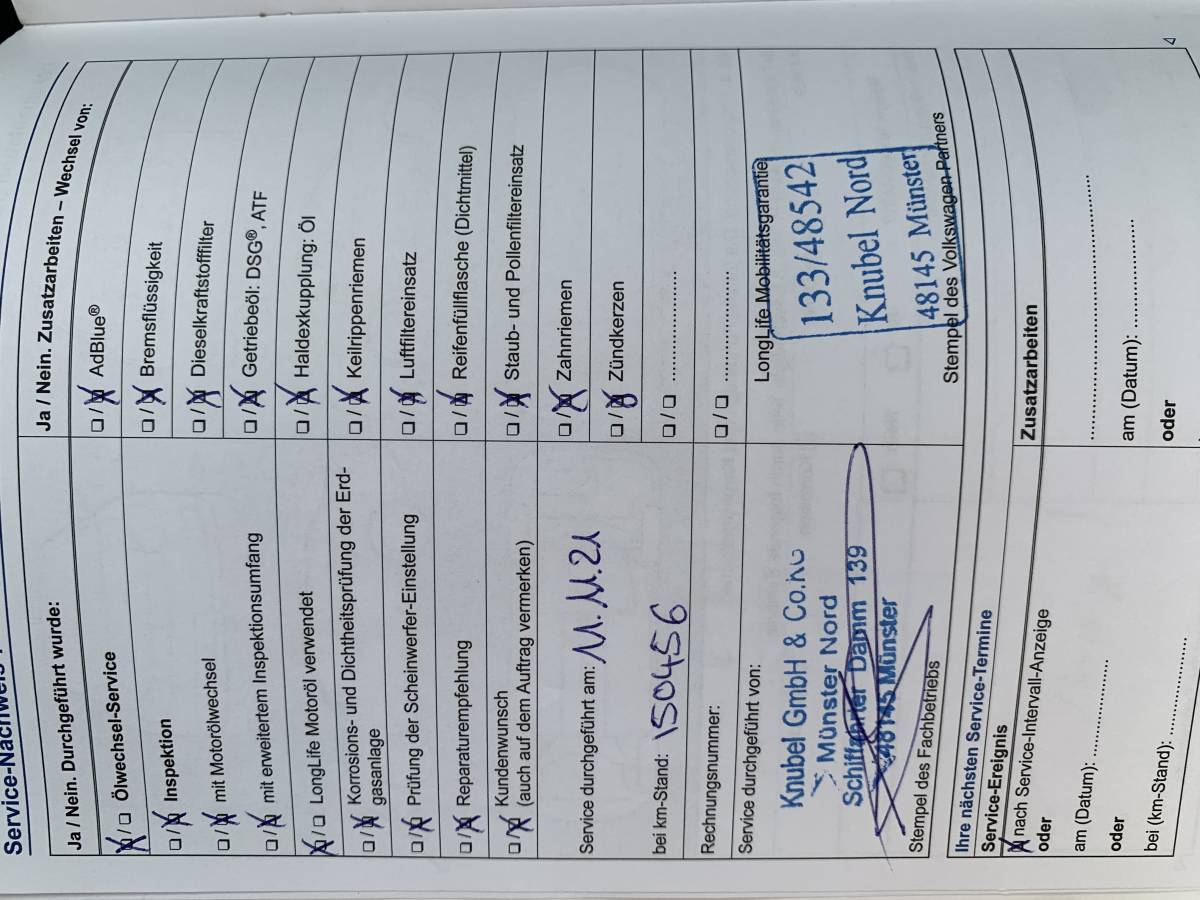 Service-Nachweis
Ja / Nein. Durchgeführt wurde:
☒ / ☐ Ölwechsel-Service
☐ / ☒ Inspektion
☐ / ☒ mit Motorölwechsel
☐ / ☒ mit erweitertem Inspektionsumfang
☒ / ☐ LongLife Motoröl verwendet
☐ / ☒ Korrosions- und Dichtheitsprüfung der Erd-
gasanlage
☐ / ☒ Prüfung der Scheinwerfer-Einstellung
☐ / ☒ Reparaturempfehlung
☐ / ☒ Kundenwunsch
(auch auf dem Auftrag vermerken)
Service durchgeführt am: 11.11.21
bei km-Stand: 150456
Rechnungsnummer:
Service durchgeführt von:
Knubel GmbH & Co.KG
Münster Nord
Schifffahrter Damm 139
48145 Münster
Stempel des Fachbetriebs
Ja / Nein. Zusatzarbeiten – Wechsel von:
☐ / ☒ AdBlue®
☐ / ☒ Bremsflüssigkeit
☐ / ☒ Dieselkraftstofffilter
☐ / ☒ Getriebeöl: DSG®, ATF
☐ / ☒ Haldexkupplung: Öl
☐ / ☒ Keilrippenriemen
☐ / ☒ Luftfiltereinsatz
☐ / ☒ Reifenfüllflasche (Dichtmittel)
☐ / ☒ Staub- und Pollenfiltereinsatz
☐ / ☒ Zahnriemen
☐ / ☒ Zündkerzen
☐ / ☐ ....................
☐ / ☐ ....................
LongLife Mobilitätsgarantie
133/48542
Knubel Nord
48145 Münster
Stempel des Volkswagen Partners
Ihre nächsten Service-Termine
Service-Ereignis
☒ nach Service-Intervall-Anzeige
oder
am (Datum): ....................
oder
bei (km-Stand): ....................
Zusatzarbeiten
........................................
am (Datum): ....................
oder